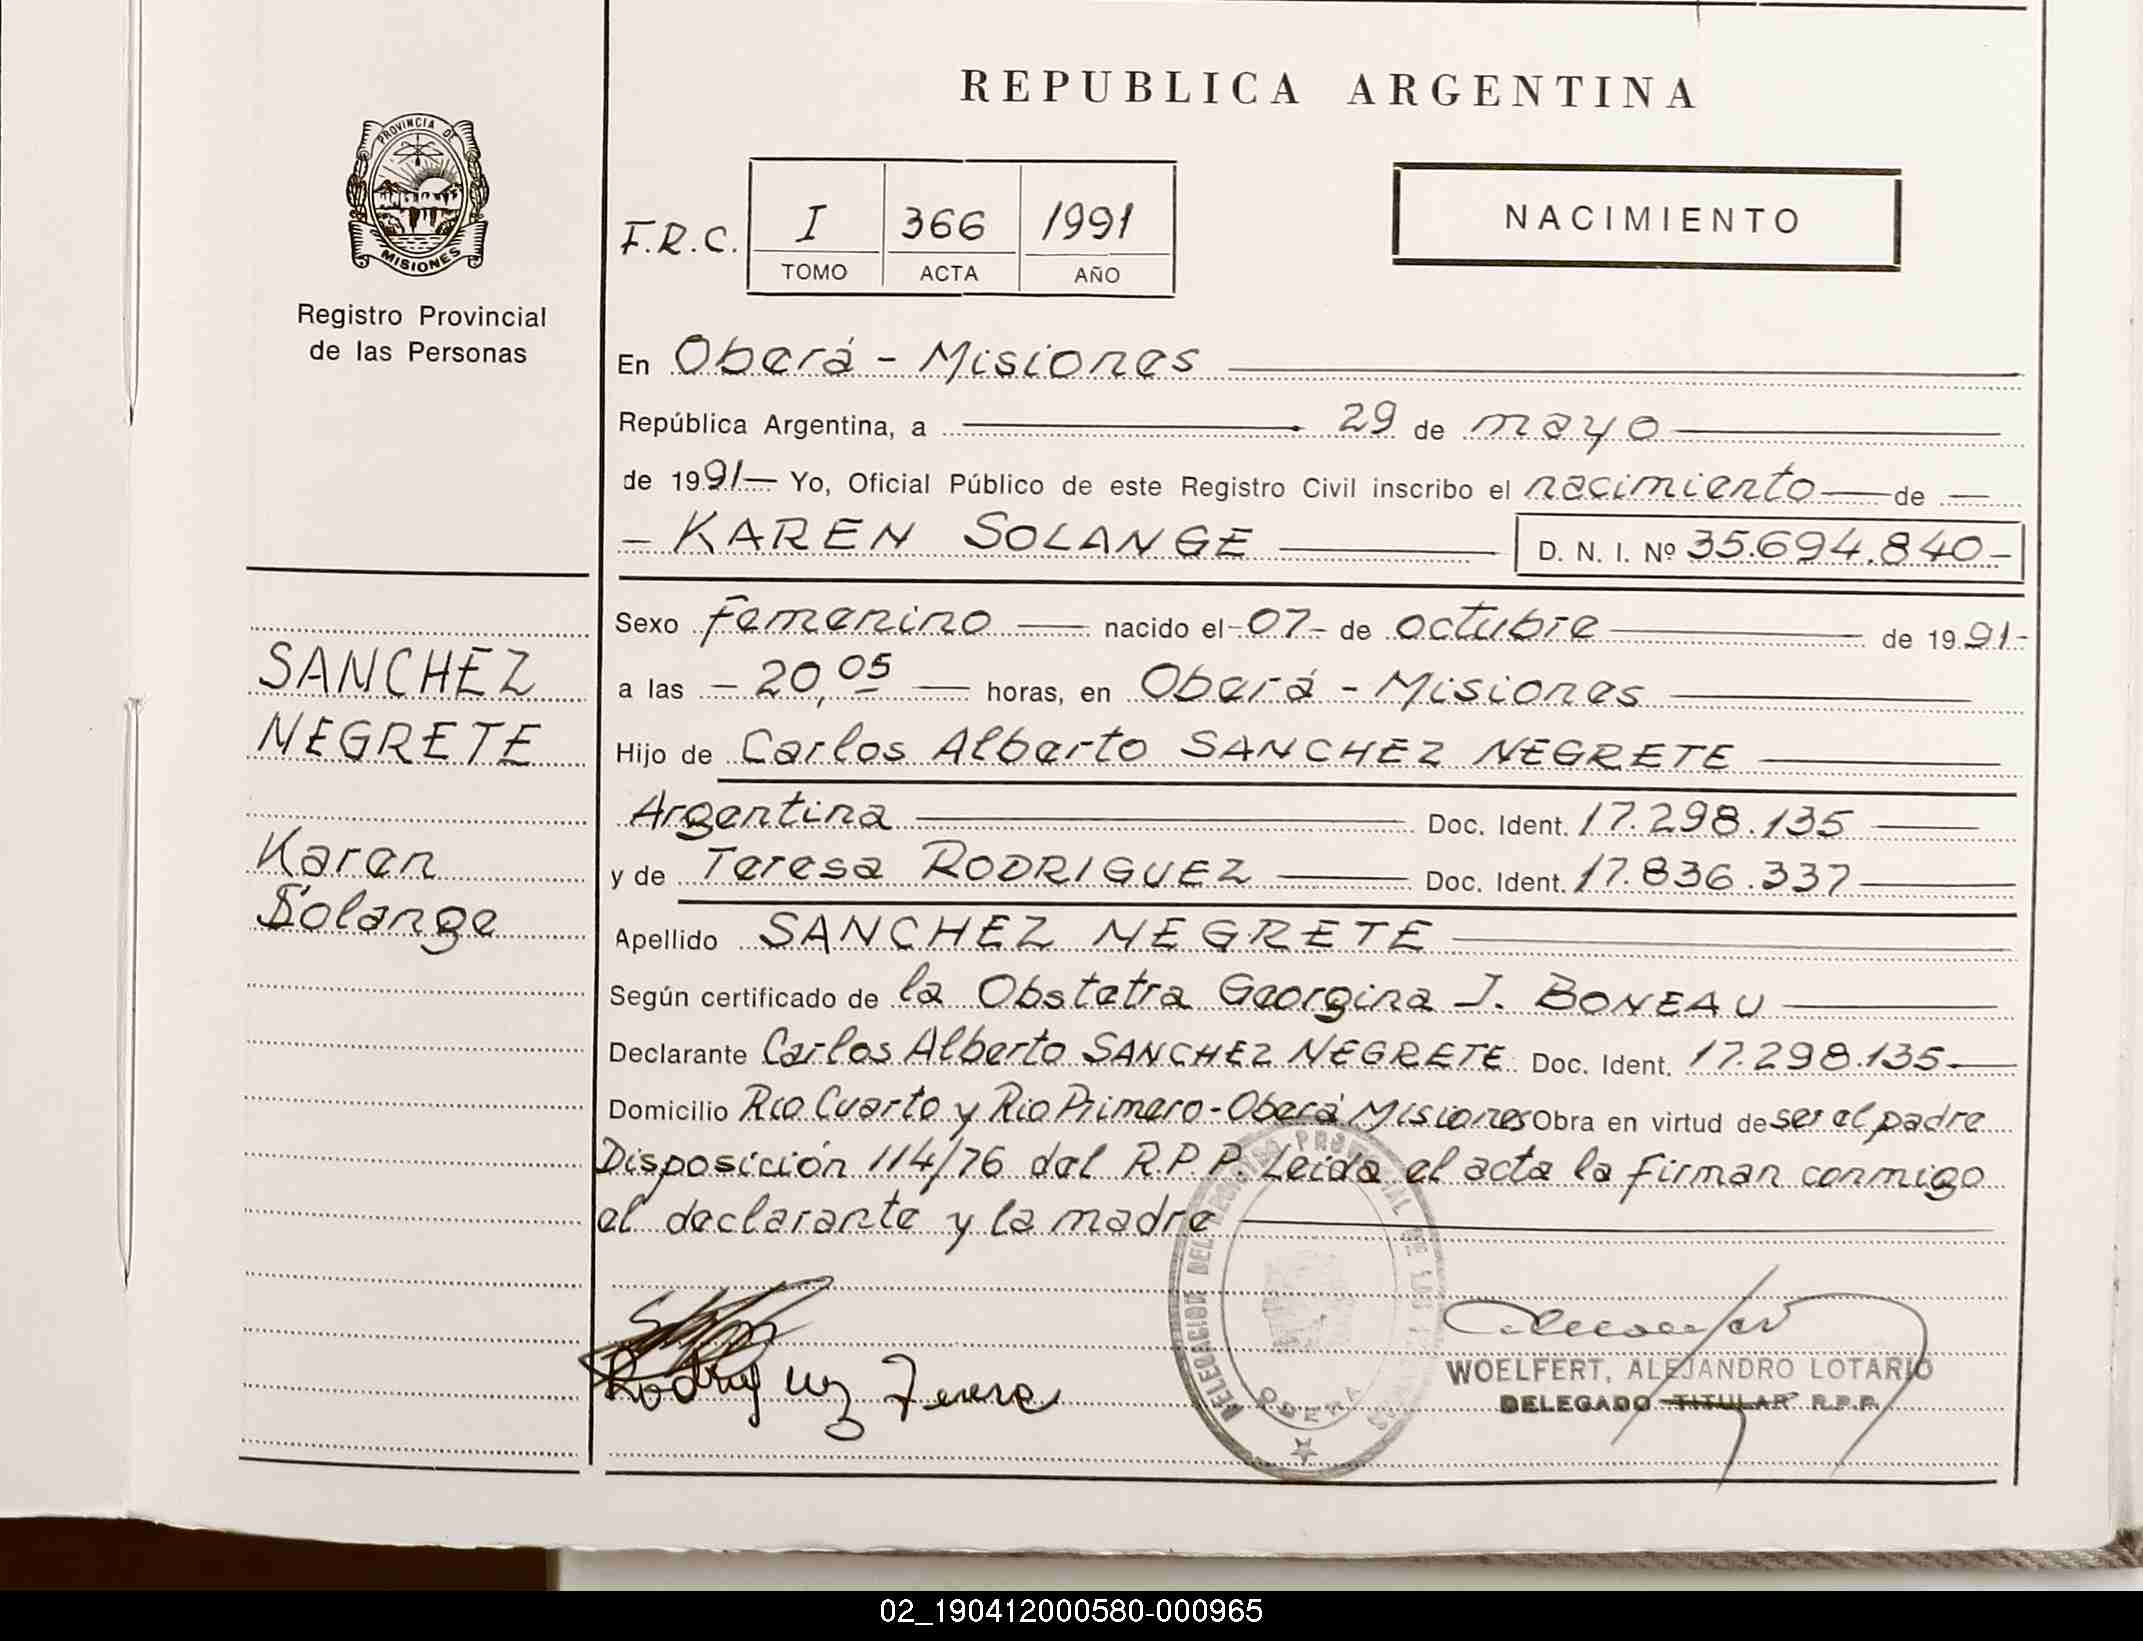 REPUBLICA ARGENTINA
PROVINCIA DE
MISIONES
Registro Provincial
de las Personas
F.R.C.
I 366 1991
TOMO ACTA AÑO
NACIMIENTO
En Oberá - Misiones
República Argentina, a 29 de mayo
de 1991 - Yo, Oficial Público de este Registro Civil inscribo el nacimiento de
- KAREN SOLANGE D. N. I. Nº 35.694.840-
SANCHEZ
NEGRETE
Karen
Solange
Sexo femenino nacido el -07- de octubre de 1991-
a las - 20,05 horas, en Oberá - Misiones
Hijo de Carlos Alberto SANCHEZ NEGRETE
Argentina Doc. Ident. 17.298.135
y de Teresa RODRIGUEZ Doc. Ident. 17.836.337
Apellido SANCHEZ NEGRETE
Según certificado de la Obstetra Georgina J. BONEAU
Declarante Carlos Alberto SANCHEZ NEGRETE Doc. Ident. 17.298.135-
Domicilio Rio Cuarto y Rio Primero - Oberá Misiones Obra en virtud de ser el padre
Disposición 114/76 del R.P.P. Leida el acta la firman conmigo
el declarante y la madre
DELEGACION DEL REGISTRO PROVINCIAL DE LAS
OBERA
Rodriguez Teresa
WOELFERT, ALEJANDRO LOTARIO
DELEGADO TITULAR R.P.P.
02_190412000580-000965